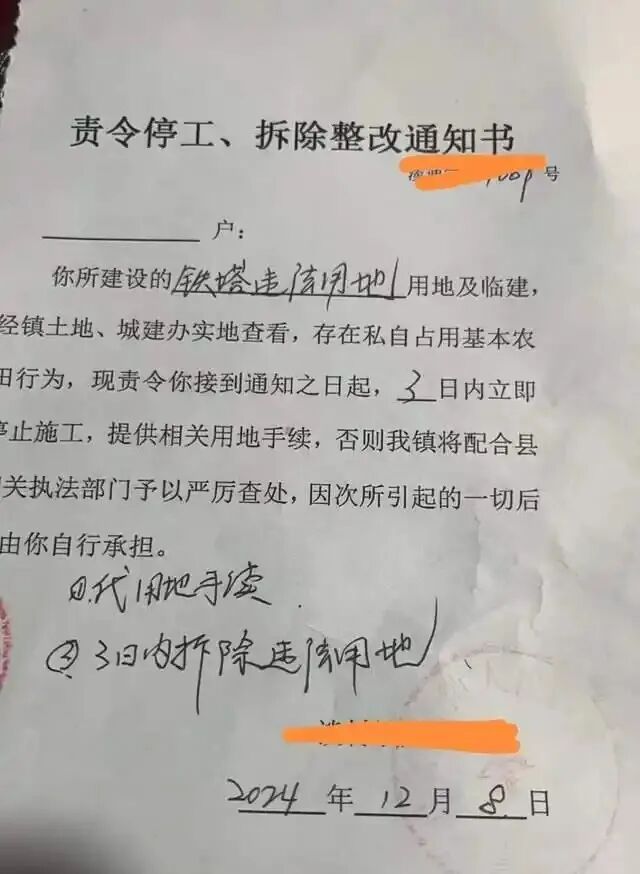 责令停工、拆除整改通知书
号
户：
你所建设的铁塔违法用地用地及临建，
经镇土地、城建办实地查看，存在私自占用基本农
田行为，现责令你接到通知之日起，3日内立即
停止施工，提供相关用地手续，否则我镇将配合县
关执法部门予以严厉查处，因次所引起的一切后
由你自行承担。
代用地手续
② 3日内拆除违法用地
2024年12月8日